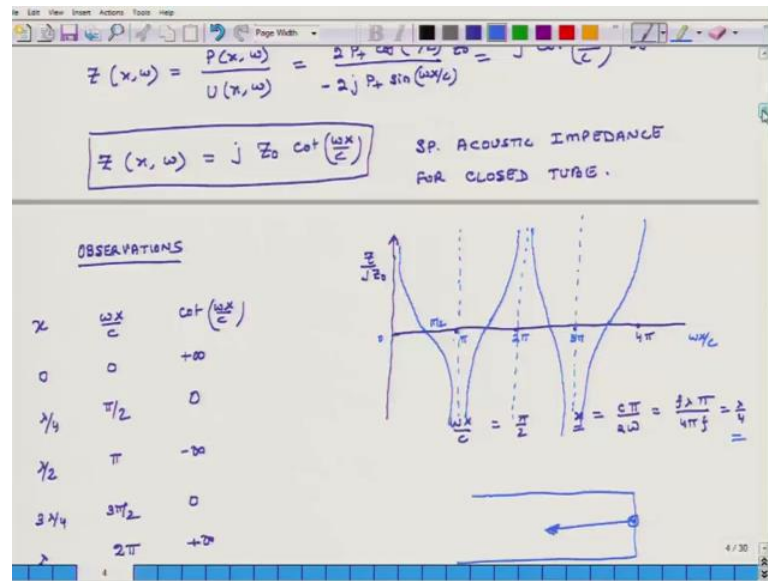 File Edit View Insert Actions Tools Help
Page Width
Z (x,ω) = P(x,ω) / U(x,ω) = 2 P+ cos(ωx/c) Z0 / -2j P+ sin(ωx/c) =
Z (x,ω) = j Z0 cot(ωx/c)
SP. ACOUSTIC IMPEDANCE
FOR CLOSED TUBE.
OBSERVATIONS
x ωx/c cot(ωx/c)
0 0 +∞
λ/4 π/2 0
λ/2 π -∞
3λ/4 3π/2 0
λ 2π +∞
Z/jZ0
0 π/2 π 2π 3π 4π ωx/c
ωx/c = π/2 x = cπ/2ω = fλπ/4πf = λ/4
4 / 30
4